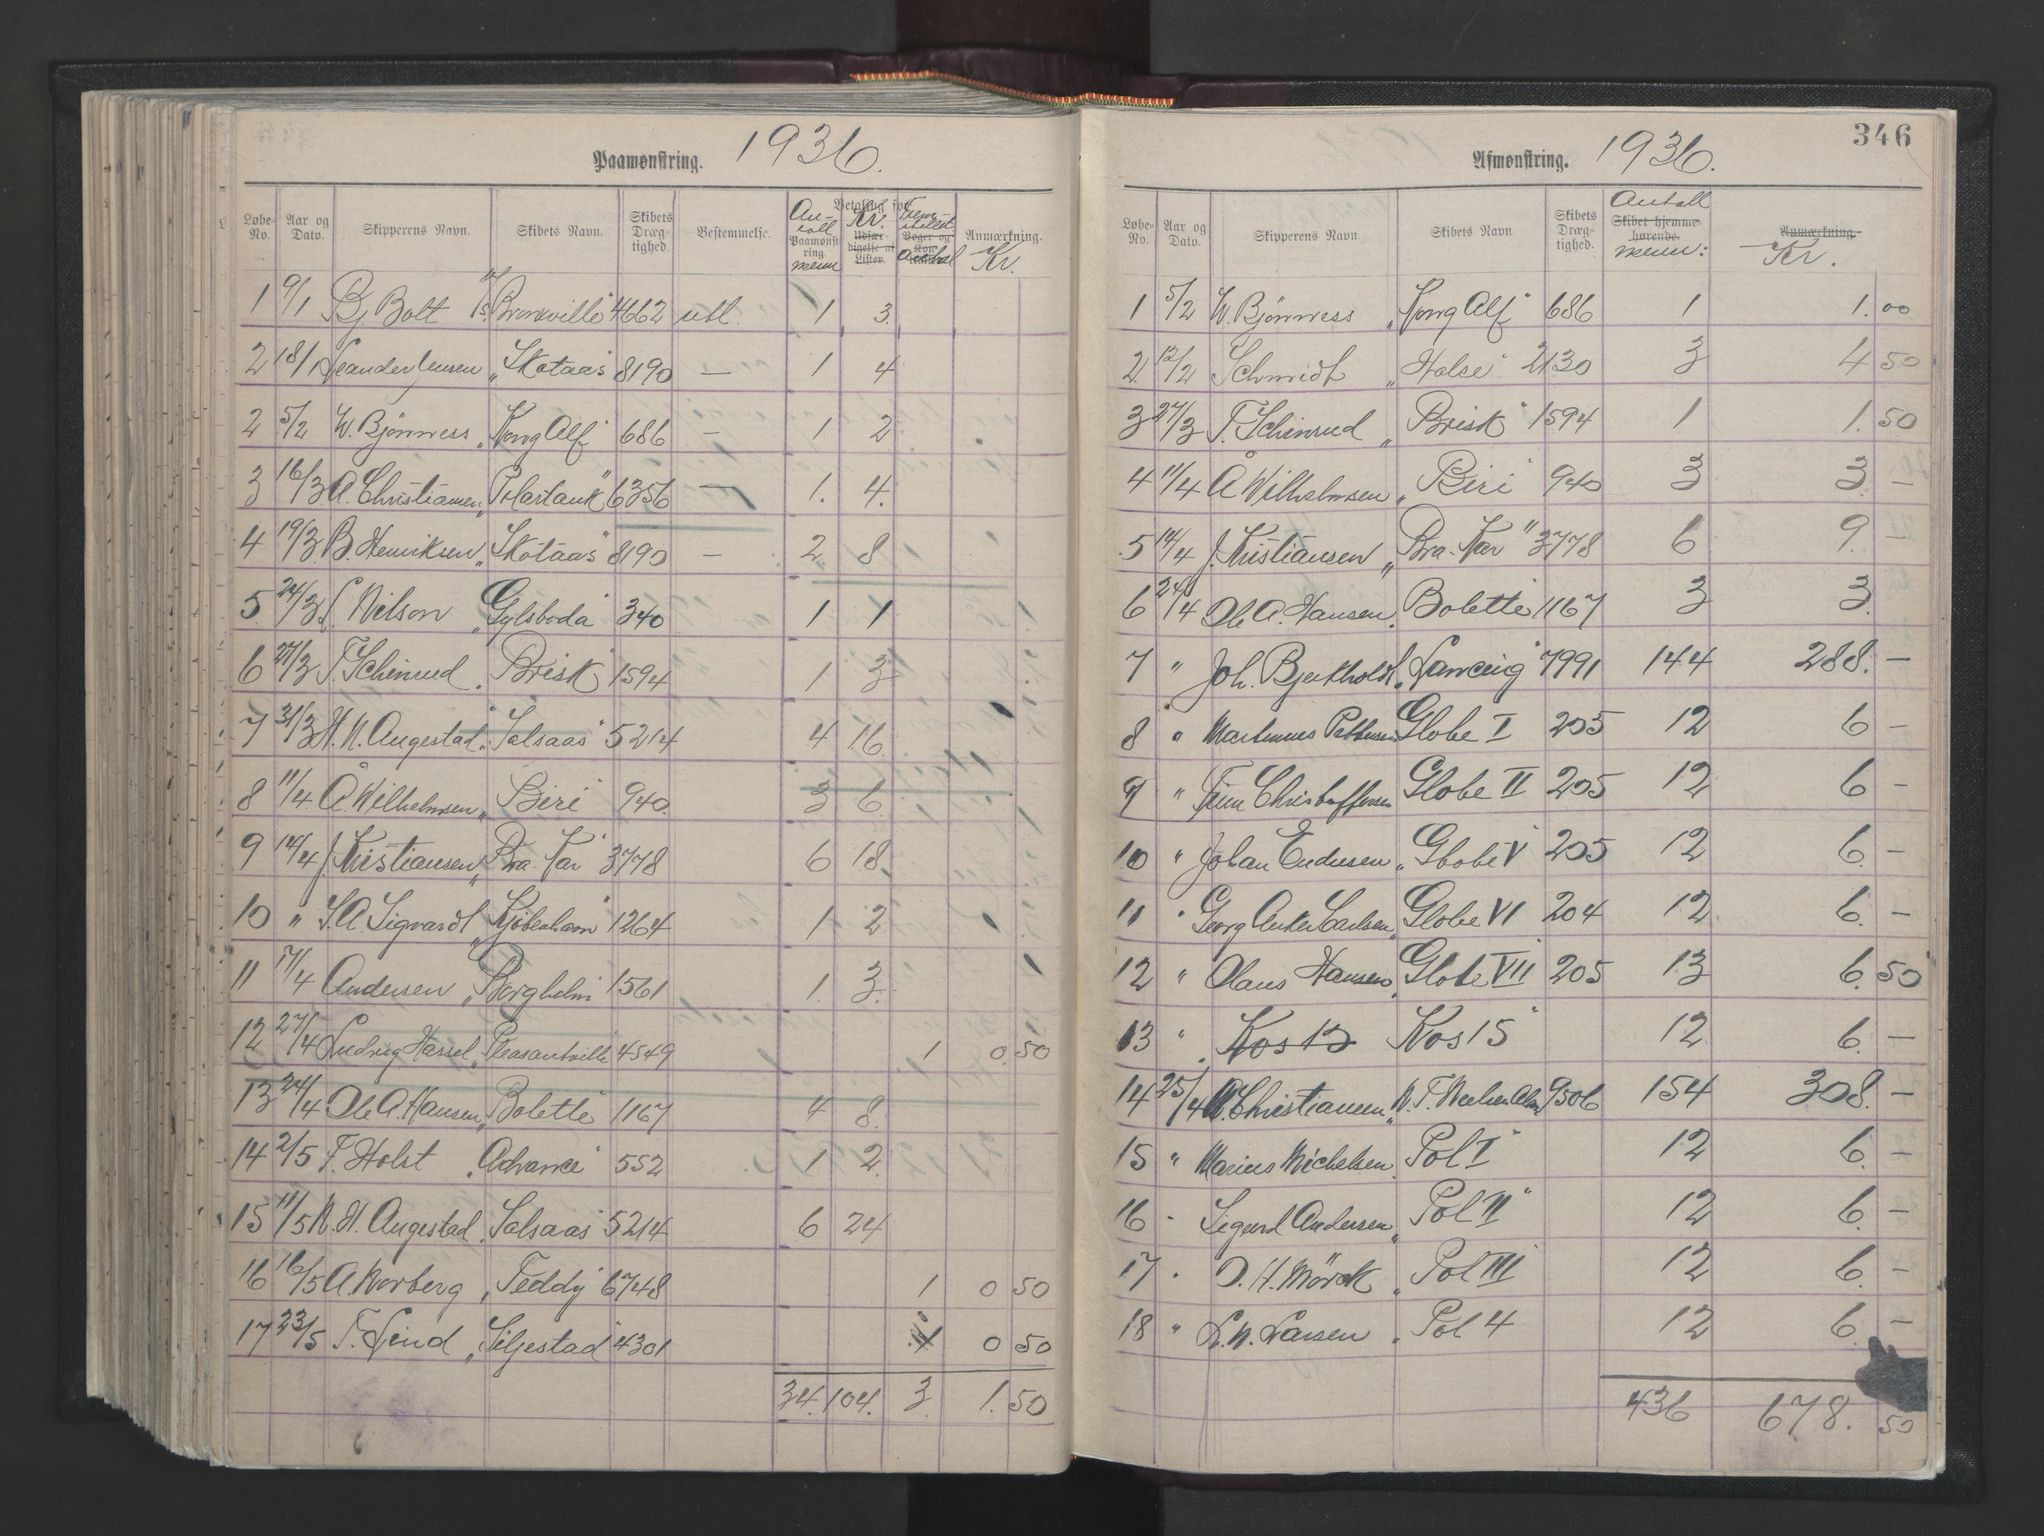 Paamønstring. 1936.
Løbe-No. Aar og Dato. Skipperens Navn. Skibets Navn. Skibets Dræg-tighed. Bestemmelse. Betaling for An-tall Paamønst-ring menn Kr. Udfær-digelse af Lister. Frem-stilled Bøger og Antal Anmærkning. Kr.
1 9/1 Bj. Bolt "Bronxville" 4662 utl. 1 3.
2 18/1 Leander Jensen "Skotaas" 8190 — 1 4
2 5/2 W. Bjønness "Kong Alf" 686 — 1 2
3 16/3 A. Christiansen "Polartank" 6356 — 1. 4.
4 19/3 B. Henriksen "Skotaas" 8190 — 2 8
5 24/3 L. Nilson "Gylsboda" 340 1 1
6 27/3 T. Schinrud "Brisk" 1594 1 3
7 31/3 H. N. Augestad "Salsaas" 5214 4 16
8 11/4 Å Wilhelmsen "Biri" 940. 3 6
9 14/4 J. Kristiansen "Bra-Kar" 3778 6 18.
10 " S. A. Sigvardt "Kjøbenhavn" 1264 1 2
11 17/4 Andersen "Borgholm" 1561 1. 3.
12 27/4 Ludvig Hassel "Pleasantville" 4549 1 0.50
13 24/4 Ole A. Hansen "Bolette" 1167 4 8.
14 2/5 F. Holst "Advance" 552 1 2
15 11/5 N. H. Augestad "Salsaas" 5214 6 24
16 16/5 A. Norberg "Teddy" 6748 1 0 50
17 23/5 T. Lind "Siljestad" 4301 1 0 50
34. 104. 3 1. 50
346
Afmønstring. 1936.
Løbe-No. Aar og Dato. Skipperens Navn. Skibets Navn. Skibets Dræg-tighed. Antall Skibet hjemme-hørende. menn: Anmærkning. Kr.
1 5/2 W. Bjønness "Kong Alf" 686 1 1. 00
2 12/2 Schmidt "Halse" 2130 3 4 50
3 27/3 T. Schinrud "Brisk" 1594 1 1. 50
4 11/4 Å Wilhelmsen "Biri" 940 3 3 —
5 14/4 J. Kristiansen "Bra-Kar" 3778 6 9. —
6 24/4 Ole A. Hansen "Bolette" 1167 3 3.
7 " Joh. Bjerkholdt "Lancing" 7991 144 288. —
8 " Martinius Pettersen Globe I 205 12 6 —
9 " Finn Christoffersen Globe II 205 12 6 —
10 " Johan Endresen "Globe V 205 12 6. —
11 " Georg Anker Carlsen "Globe VI 204 12 6. —
12 " Olaus Hansen "Globe VII" 205 13 6. 50
13 " Kos 15 Kos 15" 12 6. —
14 25/4 N. Christiansen "N. T. Nielsen Alonso" 9506 154 308. —
15 " Marius Michelsen "Pol I" 12 6. —
16 " Sigurd Andersen "Pol II" 12 6. —
17 " O. H. Mörck "Pol III" 12 6. —
18 " L. N. Larsen "Pol 4 12 6. —
436 678. 50